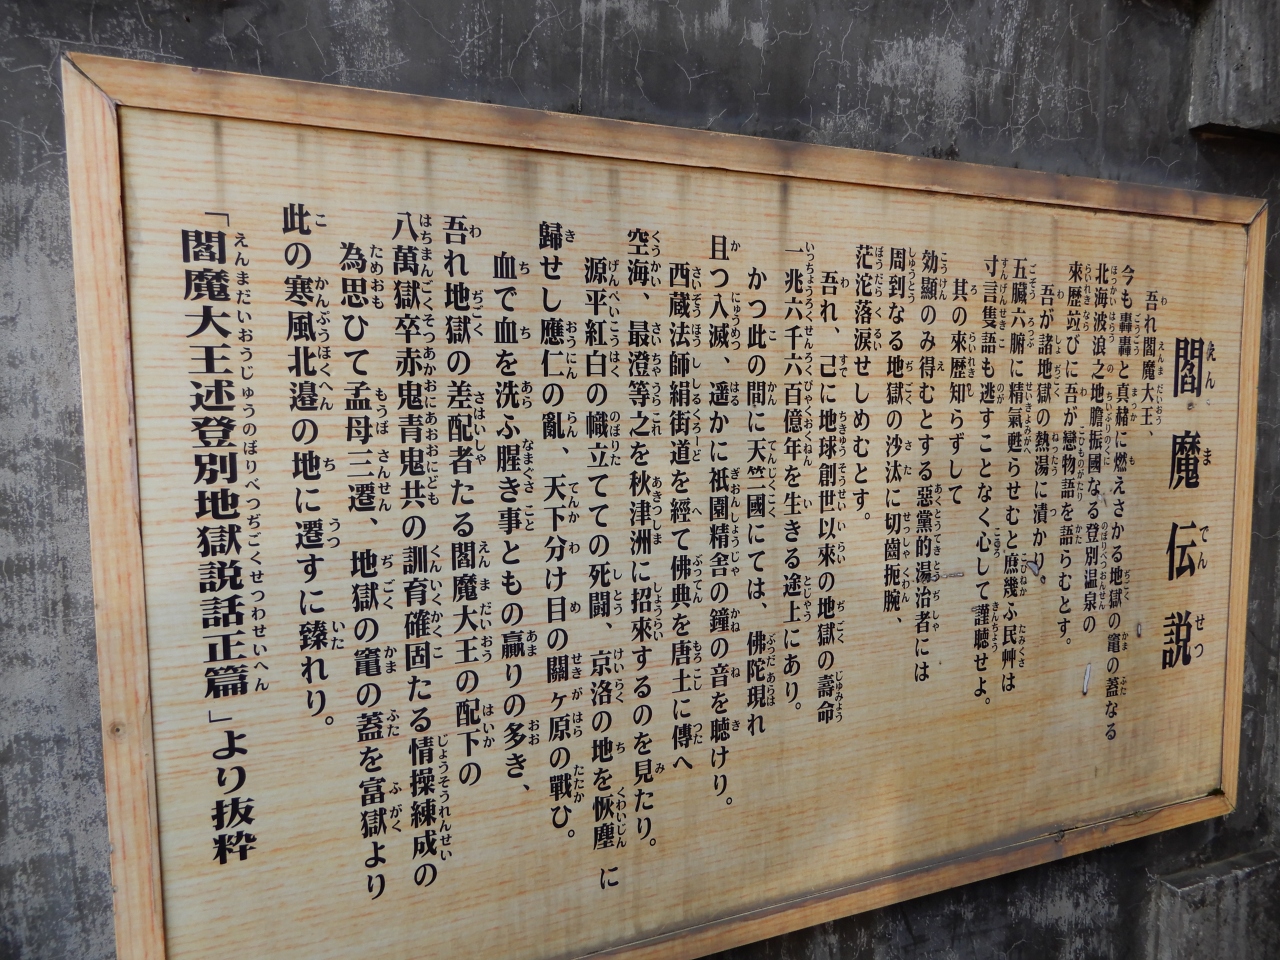 閻魔伝説
吾れ閻魔大王、
今も轟轟と真赭に燃えさかる地獄の竃の蓋なる
北海波浪之地膽振國なる登別温泉の
來歴竝びに吾が戀物語を語らむとす。
吾が諸地獄の熱湯に漬かり、
五臓六腑に精氣甦らせむと庶幾ふ民艸は
寸言隻語も逃すことなく心して謹聴せよ。
其の來歴知らずして
効顯のみ得むとする惡黨的湯治者には
周到なる地獄の沙汰に切齒扼腕、
茫沱落涙せしめむとす。
吾れ、己に地球創世以來の地獄の壽命
一兆六千六百億年を生きる途上にあり。
かつ此の間に天竺國にては、佛陀現れ
且つ入滅、遥かに祇園精舎の鐘の音を聴けり。
西蔵法師絹街道を經て佛典を唐土に傳へ
空海、最澄等之を秋津洲に招來するのを見たり。
源平紅白の幟立てての死闘、京洛の地を恢塵に
歸せし應仁の亂、天下分け目の關ヶ原の戰ひ。
血で血を洗ふ腥き事ともの贏りの多き、
吾れ地獄の差配者たる閻魔大王の配下の
八萬獄卒赤鬼青鬼共の訓育確固たる情操練成の
為思ひて孟母三遷、地獄の竃の蓋を富獄より
此の寒風北邉の地に遷すに臻れり。
「閻魔大王述登別地獄説話正篇」より抜粋